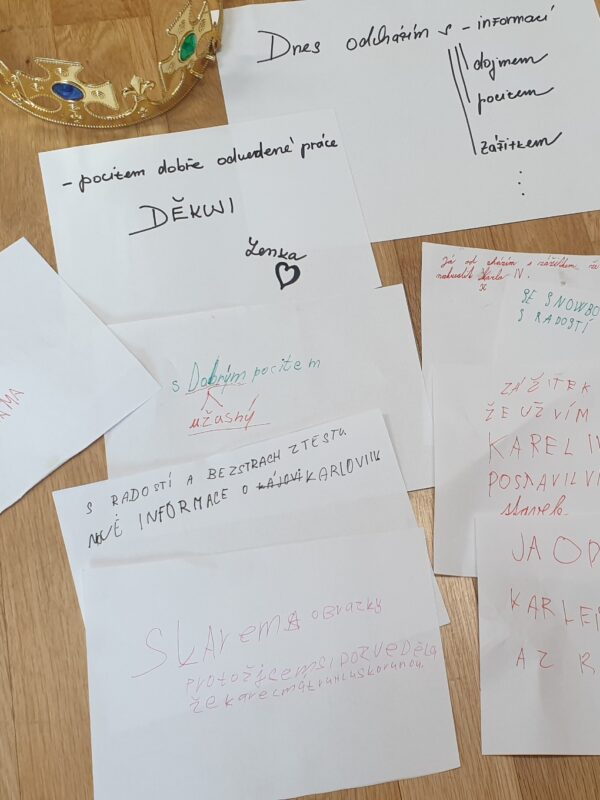 Dnes odcházím s - informací
dojmem
pocitem
zážitkem
- pocitem dobře odvedené práce
DĚKUJI
Lenka
s Dobrým pocitem
užasný
S RADOSTÍ A BEZSTRACH Z TESTU
NOVÉ INFORMACE O KARLOVI IV
SKArEmA obrázky
AMA
Já od cházím s zážitkem že
nakreslit Karla IV.
SE SNOWBO
S RADOSTÍ
ZÁŽITEK
ŽE UŽ VÍM
KAREL IV
POSTAVIL
staveb
JA OD
KARLE
AZ R